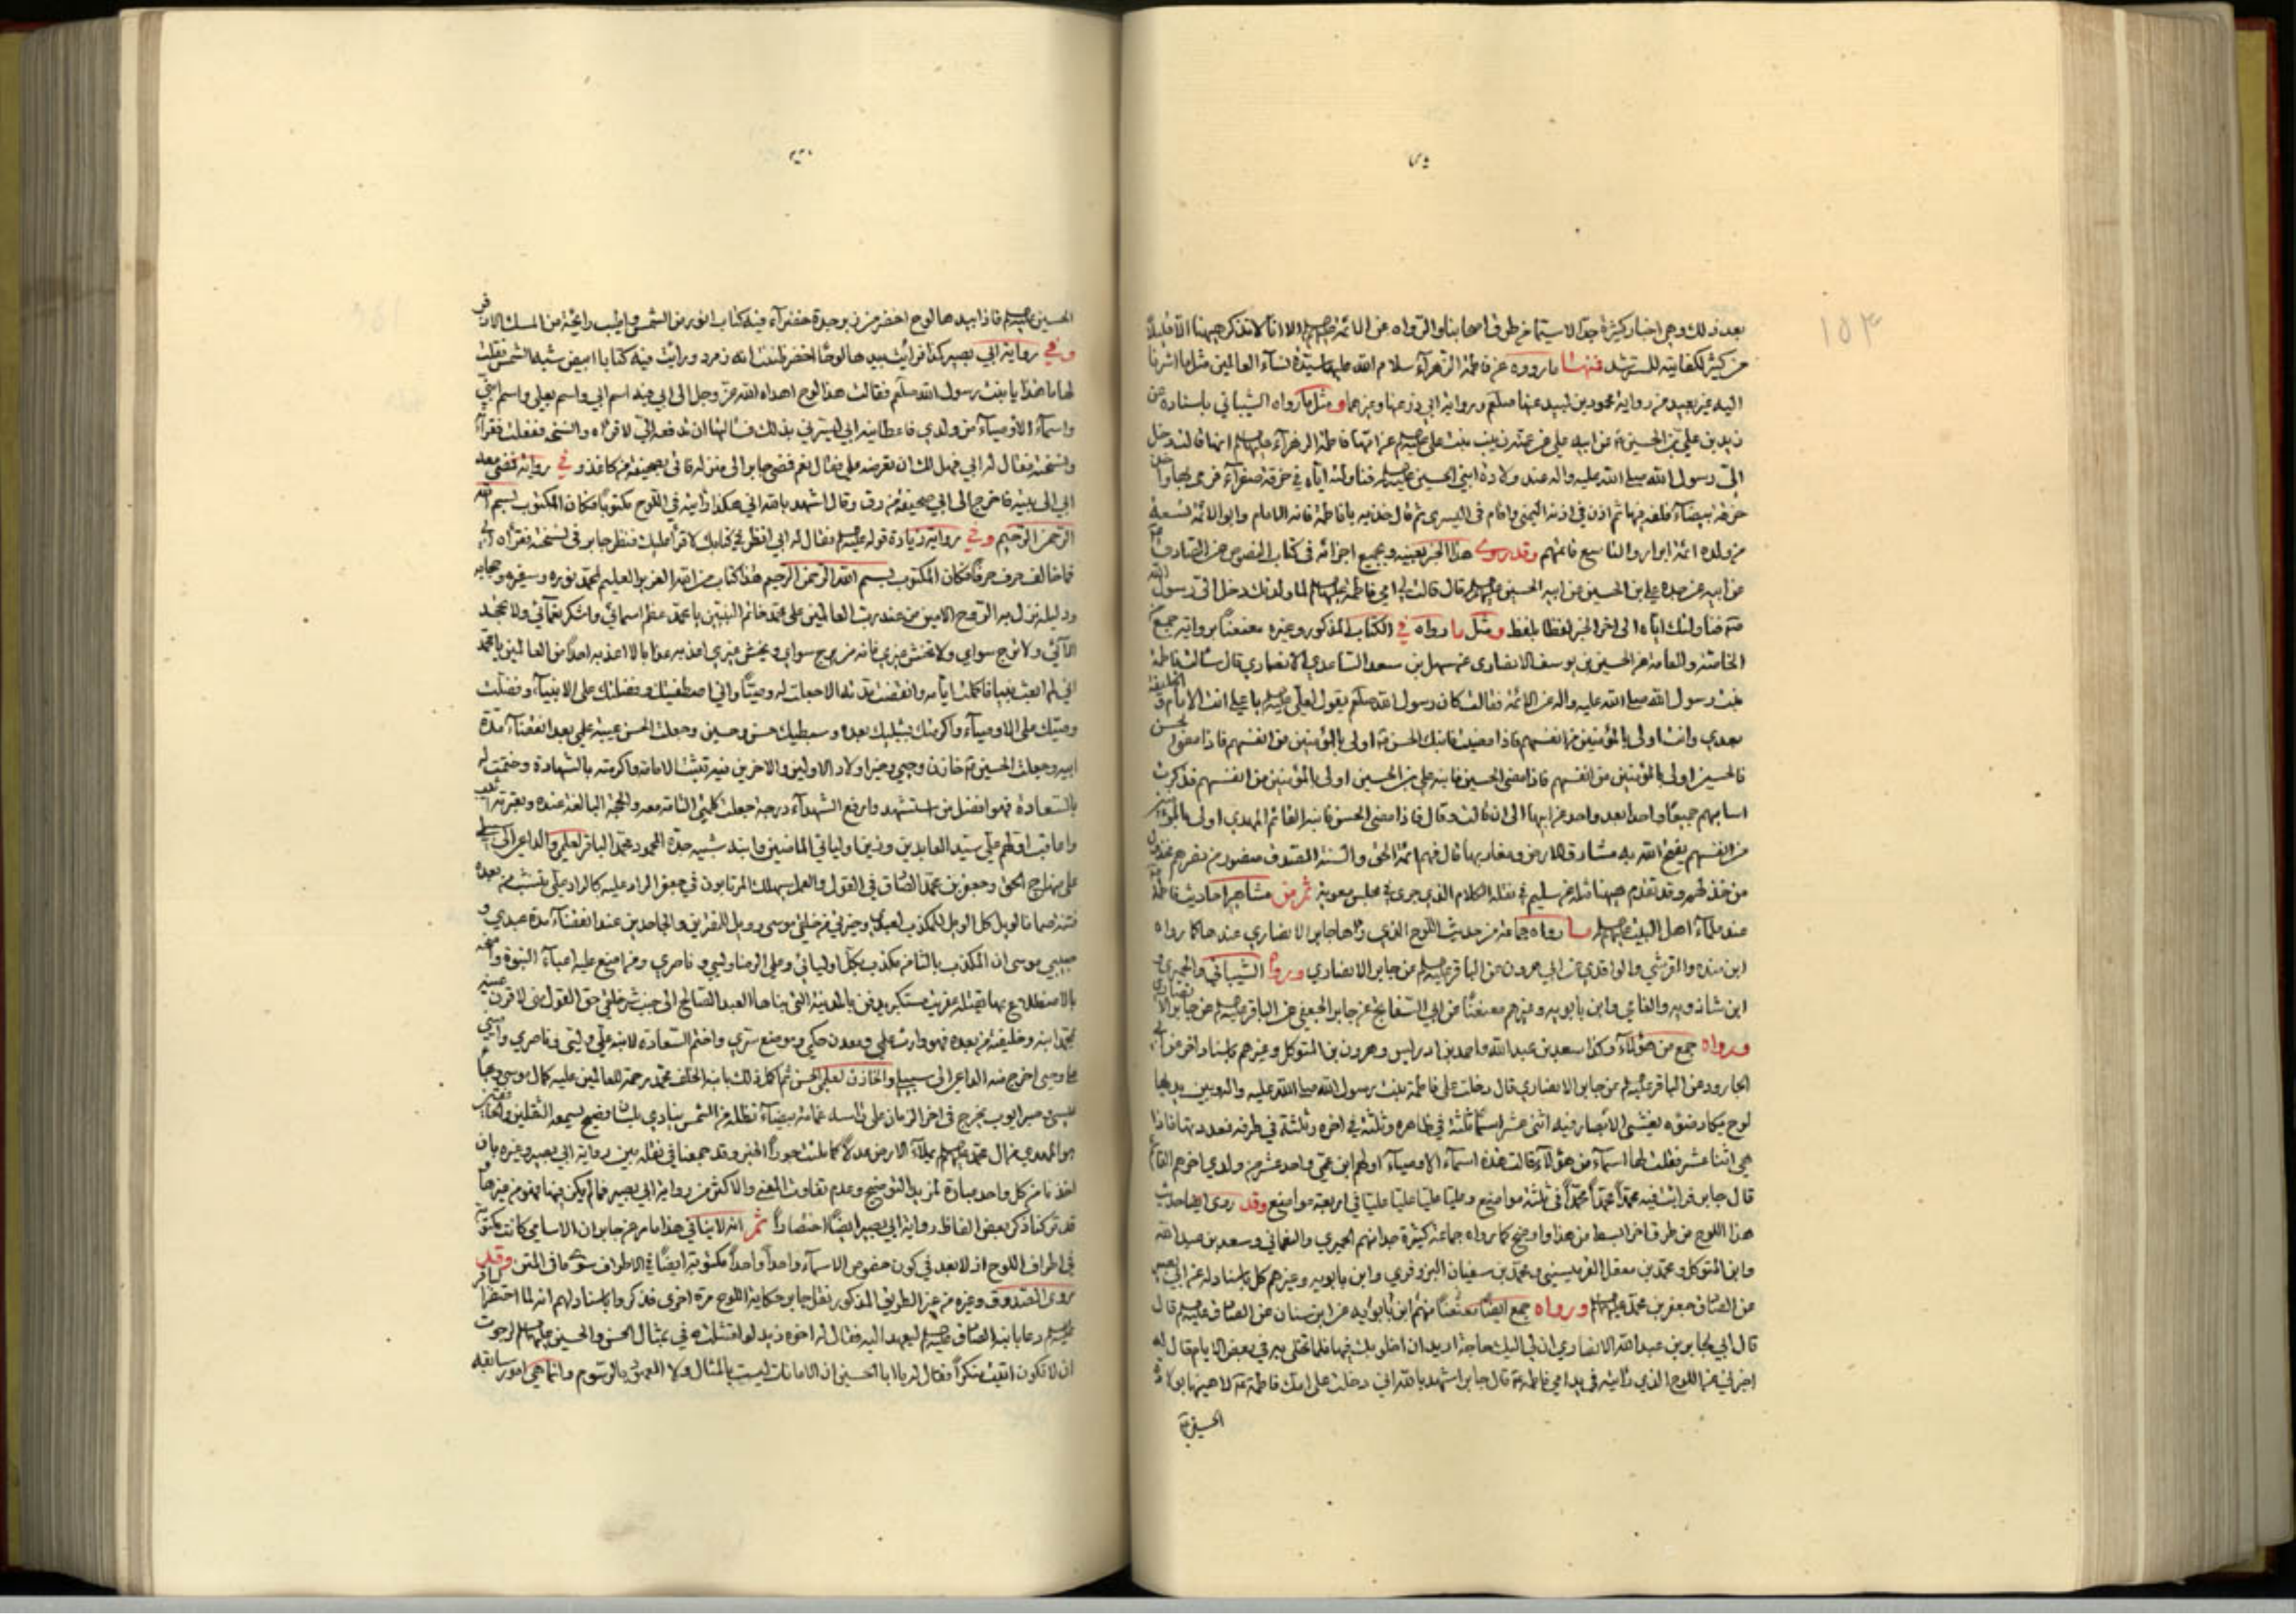 بعد ذلك وهى اخبار كثيرة جدّاً لاسيّما من طرق اصحابنا والرّواة عن الائمّة عليهم السلام الا انا لانذكر هيهنا الا قليلاً
من كثير لكفايته للمسترشد فمنها ما رووه عن فاطمة الزهرآء سلام الله عليها سيّدة نسآء العالمين مثل ما اشرنا
اليه عن بعيد من رواية محمود بن لبيد عنها صلعم ورواية ابي ذر عنها وغيرهما ومثل ما رواه الشيباني باسناده عن
زيد بن علي بن الحسين عن ابيه علي عن عمته زينب بنت علي عليه السلام عن امّها فاطمة الزهرآء عليها السلام انها قالت دخل
الىّ رسول الله صلى الله عليه واله عند ولادة ابني الحسين عليه السلام فناولته اياه في خرقة صفرآء فرمى بها واخذ
خرقة بيضآء فلفه فيها ثم اذن في اذنه اليمنى واقام في اليسرى ثم قال خذيه يا فاطمة فانه الامام وابو الائمّة تسعة
من ولده ائمة ابرار والتاسع قائمهم وقد روى هذا الخبر بعينه وبجميع اجزائه في كتاب النصوص عن الصادق
عن ابيه عن جده علي بن الحسين عن ابيه الحسين عليهم السلام قال قالت لي امي فاطمة عليها السلام لما ولدتك دخل الىّ رسول الله
فناولتك اياه الى اخر الخبر لفظا بلفظ ومثل ما رواه في الكتاب المذكور وغيره معنعناً برواية جميع
الخاصة والعامة عن الحسين بن يوسف الانصاري عن سهل بن سعد الساعدي الانصاري قال سالت فاطمة
بنت رسول الله صلى الله عليه واله عن الائمّة فقالت كان رسول الله صلعم يقول لعلي عليه السلام يا علي انت الامام والخليفة
بعدي وانت اولى بالمؤمنين من انفسهم فاذا مضيت فابنك الحسن اولى بالمؤمنين من انفسهم فاذا مضى الحسن
فالحسين اولى بالمؤمنين من انفسهم فاذا مضى الحسين فابنه علي بن الحسين اولى بالمؤمنين من انفسهم فذكرت
اساميهم جميعاً واحدا بعد واحد عن ابيها الى ان قالت وقال فاذا مضى الحسن فابنه القائم المهدي اولى بالمؤمنين
من انفسهم يفتح الله به مشارق الارض ومغاربها قال فهم ائمة الحق والسنة الصدق منصور من نصرهم مخذول
من خذلهم وقد تقدم هيهنا مثله عن سليم في نقله الكلام الذي جرى في مجلس معوية ثم من مشاهير احاديث فاطمة
عند علمآء اهل البيت عليهم السلام ما رواه جماعة من حديث اللوح الذي رآها جابر الانصاري عندها كما رواه
ابن منده والقرشي والواقدي عن ابي هرون عن الباقر عليه السلام عن جابر الانصاري وروا الشيباني والحميري و
ابن شاذويه والفامي وابن بابويه وغيرهم معنعناً عن ابي السفاتج عن جابر الجعفي عن الباقر عليه السلام عن جابر الانصاري
ورواه جمع من هؤلاء وكذا سعد بن عبد الله واحمد بن ادريس وهرون بن المتوكل وغيرهم باسناد اخر عن ابي
الجارود عن الباقر عليه السلام عن جابر الانصاري قال دخلت على فاطمة بنت رسول الله صلى الله عليه واله وبين يديها
لوح يكاد ضوءه يغشى الابصار فيه اثنى عشر اسماً ثلثة في ظاهره وثلثة في اخره وثلثة في طرفه فعددتها فاذا
هي اثنا عشر فقلت لها اسمآء من هؤلآء قالت هذه اسمآء الاوصيآء اولهم ابن عمّي واحد عشر من ولدي اخرهم القائم
قال جابر فرايت فيه محمّداً محمّداً محمّداً في ثلثة مواضع وعليّا عليّا عليّا عليّا في اربعة مواضع وقد روى ايضا حديث
هذا اللوح من طرق اخر ابسط من هذا واوضح كما رواه جماعة كثيرة جدا منهم الحميري والنعماني وسعد بن عبد الله
وابن المتوكل ومحمّد بن معقل القرميسيني ومحمّد بن سفيان البزوفري وابن بابويه وغيرهم كل باسناد له عن ابي بصير
عن الصادق جعفر بن محمّد عليهما السلام ورواه جمع ايضاً معنعناً منهم ابن بابويه عن ابن سنان عن الصادق عليه السلام قال
قال ابي لجابر بن عبد الله الانصاري ان لي اليك حاجة اريد ان اخلو بك فيها فلما تخلى به في بعض الايام قال له
اخبرني عن اللوح الذي رأيته في يد امي فاطمة قال جابر اشهد بالله اني دخلت على امك فاطمة لاهنيها بولادة
الحسين
الحسين عليه السلام فاذا بيدها لوح اخضر من زبرجدة خضرآء فيه كتاب انور من الشمس واطيب رايحة من المسك الاذفر
وفي رواية ابي بصير كذا فرأيت بيدها لوحًا اخضر ظننت انه زمرد ورايت فيه كتابا ابيض شبه الشمس فقلت
لها ما هذا يا بنت رسول الله صلعم فقالت هذا لوح اهداه الله عزّ وجل الى ابي فيه اسم ابي واسم بعلي واسم ابنيّ
واسمآء الاوصيآء من ولدي فاعطانيه ابي ليسرني بذلك فسالتها ان تدفعه اليّ لاقرأه وانسخه ففعلت فقرأته
ونسخته فقال له ابي فهل لك ان تعرضه علي فقال نعم فمضى جابر الى منزله فاتى بصحيفة من كاغذ وفي رواية فمضى معه
ابي الى بيته فاخرج الى ابي صحيفة من رق وقال اشهد بالله اني هكذا رايته في اللوح مكتوباً فكان المكتوب بسم الله
الرحمن الرحيم وفي رواية زيادة قوله عليه السلام فقال له ابي انظر في كتابك لاقرأ عليك فنظر جابر في نسخته فقرأه ابي
فما خالف حرف حرفاً فكان المكتوب بسم الله الرحمن الرحيم هذا كتاب من الله العزيز العليم لمحمّد نوره وسفيره وحجابه
ودليله نزل به الروح الامين من عند رب العالمين على محمّد خاتم النبيّين يا محمّد عظم اسمائي واشكر نعمآئي ولا تجحد
الآئي ولا ترج سواي ولا تخش غيري فانه من يرج سواي ويخش غيري اعذبه عذابا لا اعذبه احداً من العالمين يا محمّد
اني لم ابعث نبيا فاكملت ايامه وانقضت مدته الا جعلت له وصيّاً واني اصطفيتك وفضلتك على الانبيآء وفضلت
وصيّك على الاوصيآء واكرمتك بشبليك بعده وسبطيك حسن وحسين وجعلت الحسن عيبة علمي بعد انقضآء مدة
ابيه وجعلت الحسين خازن وحيي وخير اولاد الاولين والاخرين فيه تثبت الامامة واكرمته بالشهادة وختمت له
بالسعادة فهو افضل من استشهد وارفع الشهدآء درجة جعلت كلمتي التامة معه والحجة البالغة عنده وبعترته اثيب
واعاقب اولهم علي سيّد العابدين وزين اوليائي الماضين وابنه شبيه جدّه المحمود محمّد الباقر لعلمي والداعي الى سبيلي
على منهاج الحق وجعفر بن محمّد الصادق في القول والعمل سيهلك المرتابون في جعفر الراد عليه كالراد علي
فتنة صما فالويل كل الويل للمكذب لعبدي وخيرتي من خلقي موسى وويل للمفترين والجاحدين عند انقضآء مدة عبدي و
حبيبي موسى ان المكذب بالثامن مكذب بكل اوليائي وعلي الرضا وليي وناصري ومن اضع عليه اعبآء النبوة وامتحنه
بالاضطلاع بها يقتله عفريت مستكبر يدفن بالمدينة التي بناها العبد الصالح الى جنب شر خلقي حق القول مني لاقرن عينيه
بمحمّد ابنه وخليفته من بعده فهو وارث علمي ومعدن حكمي وموضع سرّي واختم السعادة لابنه علي وليي وناصري واميني
على وحيي اخرج منه الداعي الى سبيلي والخازن لعلمي الحسن ثم اكمل ذلك بابنه الخلف محمّد رحمة للعالمين عليه كمال موسى وبهآء
عيسى وصبر ايوب يخرج في اخر الزمان على رأسه غمامة بيضآء تظله من الشمس ينادي بلسان فصيح يسمعه الثقلين والخافقين
هو المهدي من ال محمّد عليهم السلام يملأ الارض عدلاً كما ملئت جوراً الخبر وقد جمعنا في نقله بين رواية ابي بصير وغيره بان
اخذنا من كل واحد عبارة لمزيد التوضيح وعدم تفاوت المعنى والاكثر من رواية ابي بصير فما لم يكن فيها فهو من غيرها و
قد تركنا ذكر بعض الفاظ رواية ابي بصير ايضًا اختصاراً ثم انه لا ينافي هذا ما مر عن جابر ان الاسامي كانت مكتوبة
في اطراف اللوح اذ لا بعد في كون خصوص الاسمآء واحداً واحداً مكتوبة ايضًا في الاطراف سوى ما في المتن وقد
روى الصدوق وغيره من غير الطريق المذكور نقل جابر حكاية اللوح مرة اخرى فذكروا باسنادهم انه لما احتضر الباقر
عليه السلام دعا بابنه الصادق عليه السلام ليعهد اليه فقال له اخوه زيد لو امتثلت في بمثال الحسن والحسين عليهما السلام لرجوت
ان لا تكون اتيت منكراً فقال له يا ابا الحسين ان الامانات ليست بالمثال ولا العهود بالرسوم وانما هي امور سابقة